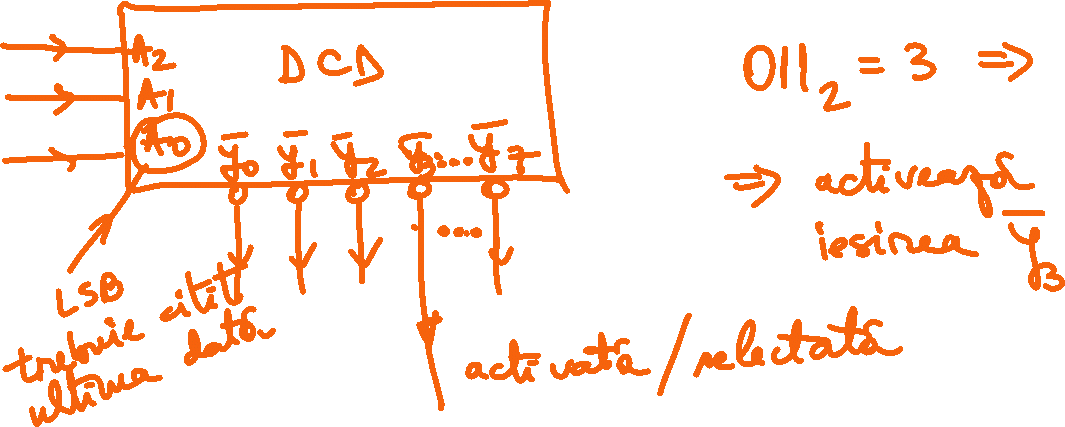 DCD
A₂
A₁
A₀
y̅₀ y̅₁ y̅₂ y̅₃ ... y̅₇
....
LSB
trebuie citit
ultima dată
activată / selectată
011₂ = 3 ⇒
⇒ activează
iesirea Y̅₃